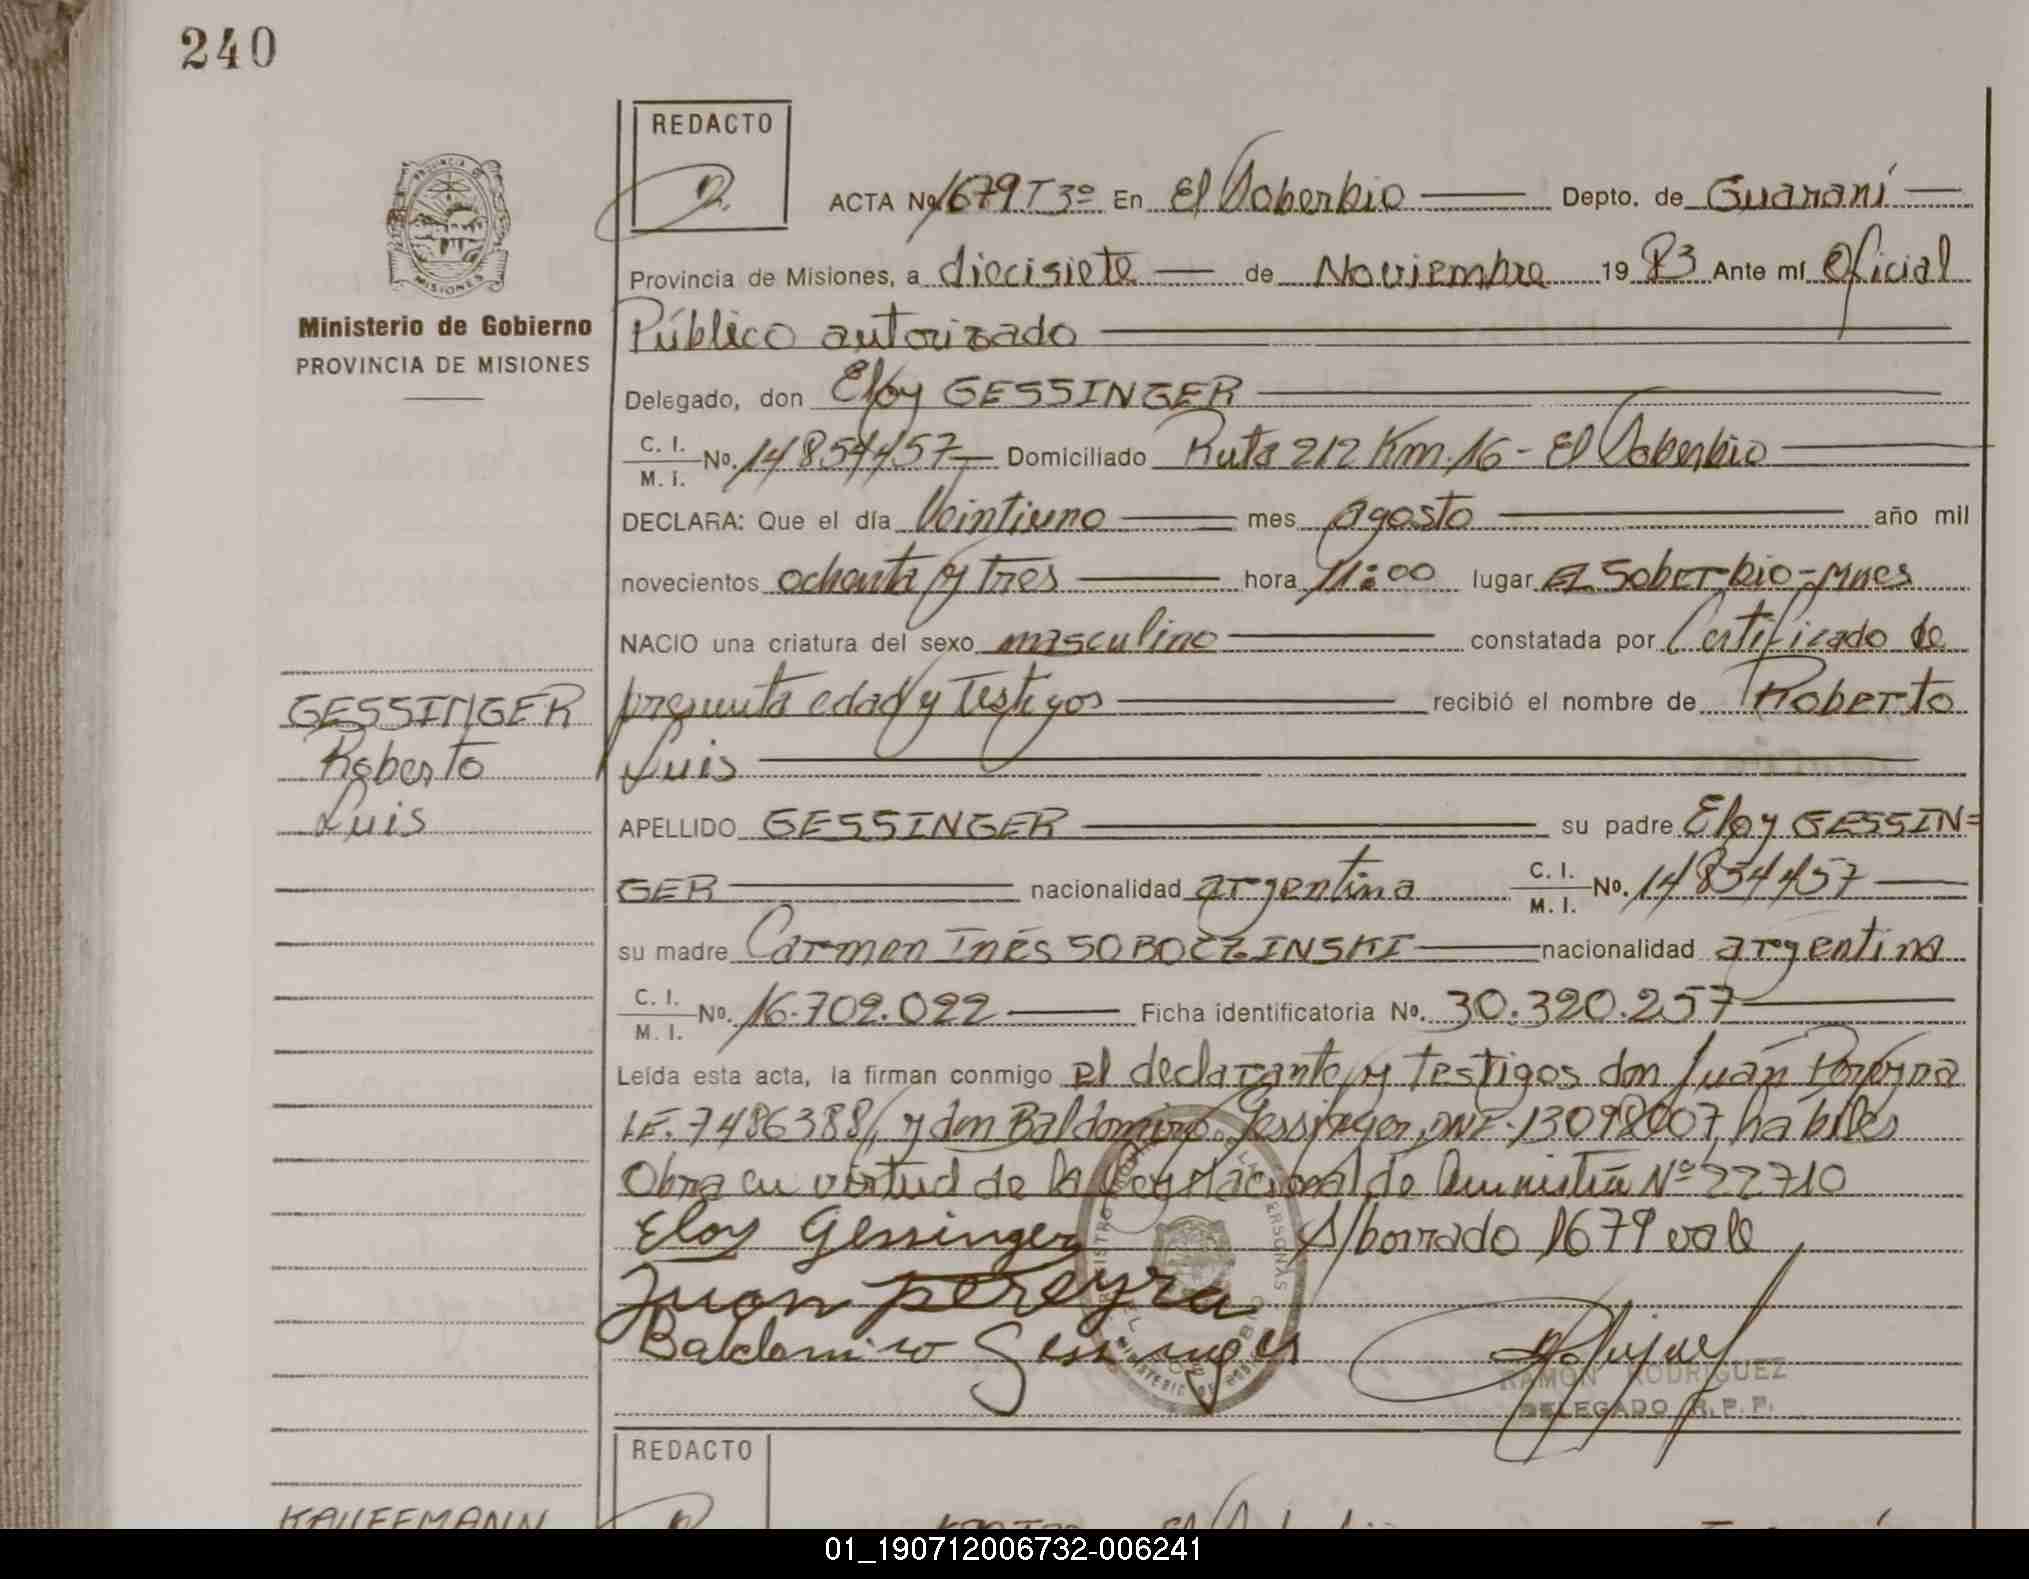 240
REDACTO
ACTA No. 1679 T 3º En El Soberbio Depto. de Guaraní
Provincia de Misiones, a diecisiete de Noviembre 1983 Ante mí Oficial
Público autorizado
Ministerio de Gobierno
PROVINCIA DE MISIONES
Delegado, don Eloy GESSINGER
C. I.
M. I. No. 14854457 Domiciliado Ruta 212 Km. 16 - El Soberbio
DECLARA: Que el día Veintiuno mes agosto año mil
novecientos ochenta y tres hora 11:00 lugar El Soberbio-Mnes
NACIO una criatura del sexo masculino constatada por Certificado de
presunta edad y Testigos recibió el nombre de Roberto
Luis
GESSINGER
Roberto
Luis
APELLIDO GESSINGER su padre Eloy GESSIN=
GER nacionalidad argentina C. I.
M. I. No. 14854457
su madre Carmen Inés SOBOCZINSKI nacionalidad argentina
C. I.
M. I. No. 16.702.022 Ficha identificatoria No. 30.320.257
Leída esta acta, la firman conmigo el declarante y testigos don Juan Pereyra
LE. 7486388, y don Baldomiro Gessinger, DNI. 13098007, hábiles
Obra en virtud de la Ley Nacional de Amnistía Nº 22710
Eloy Gessinger S/borrado 1679 vale
Juan Pereyra
Baldomiro Gessinger
RAMON RODRIGUEZ
DELEGADO R. P. P.
REDACTO
KAUFFEMANN
01_190712006732-006241